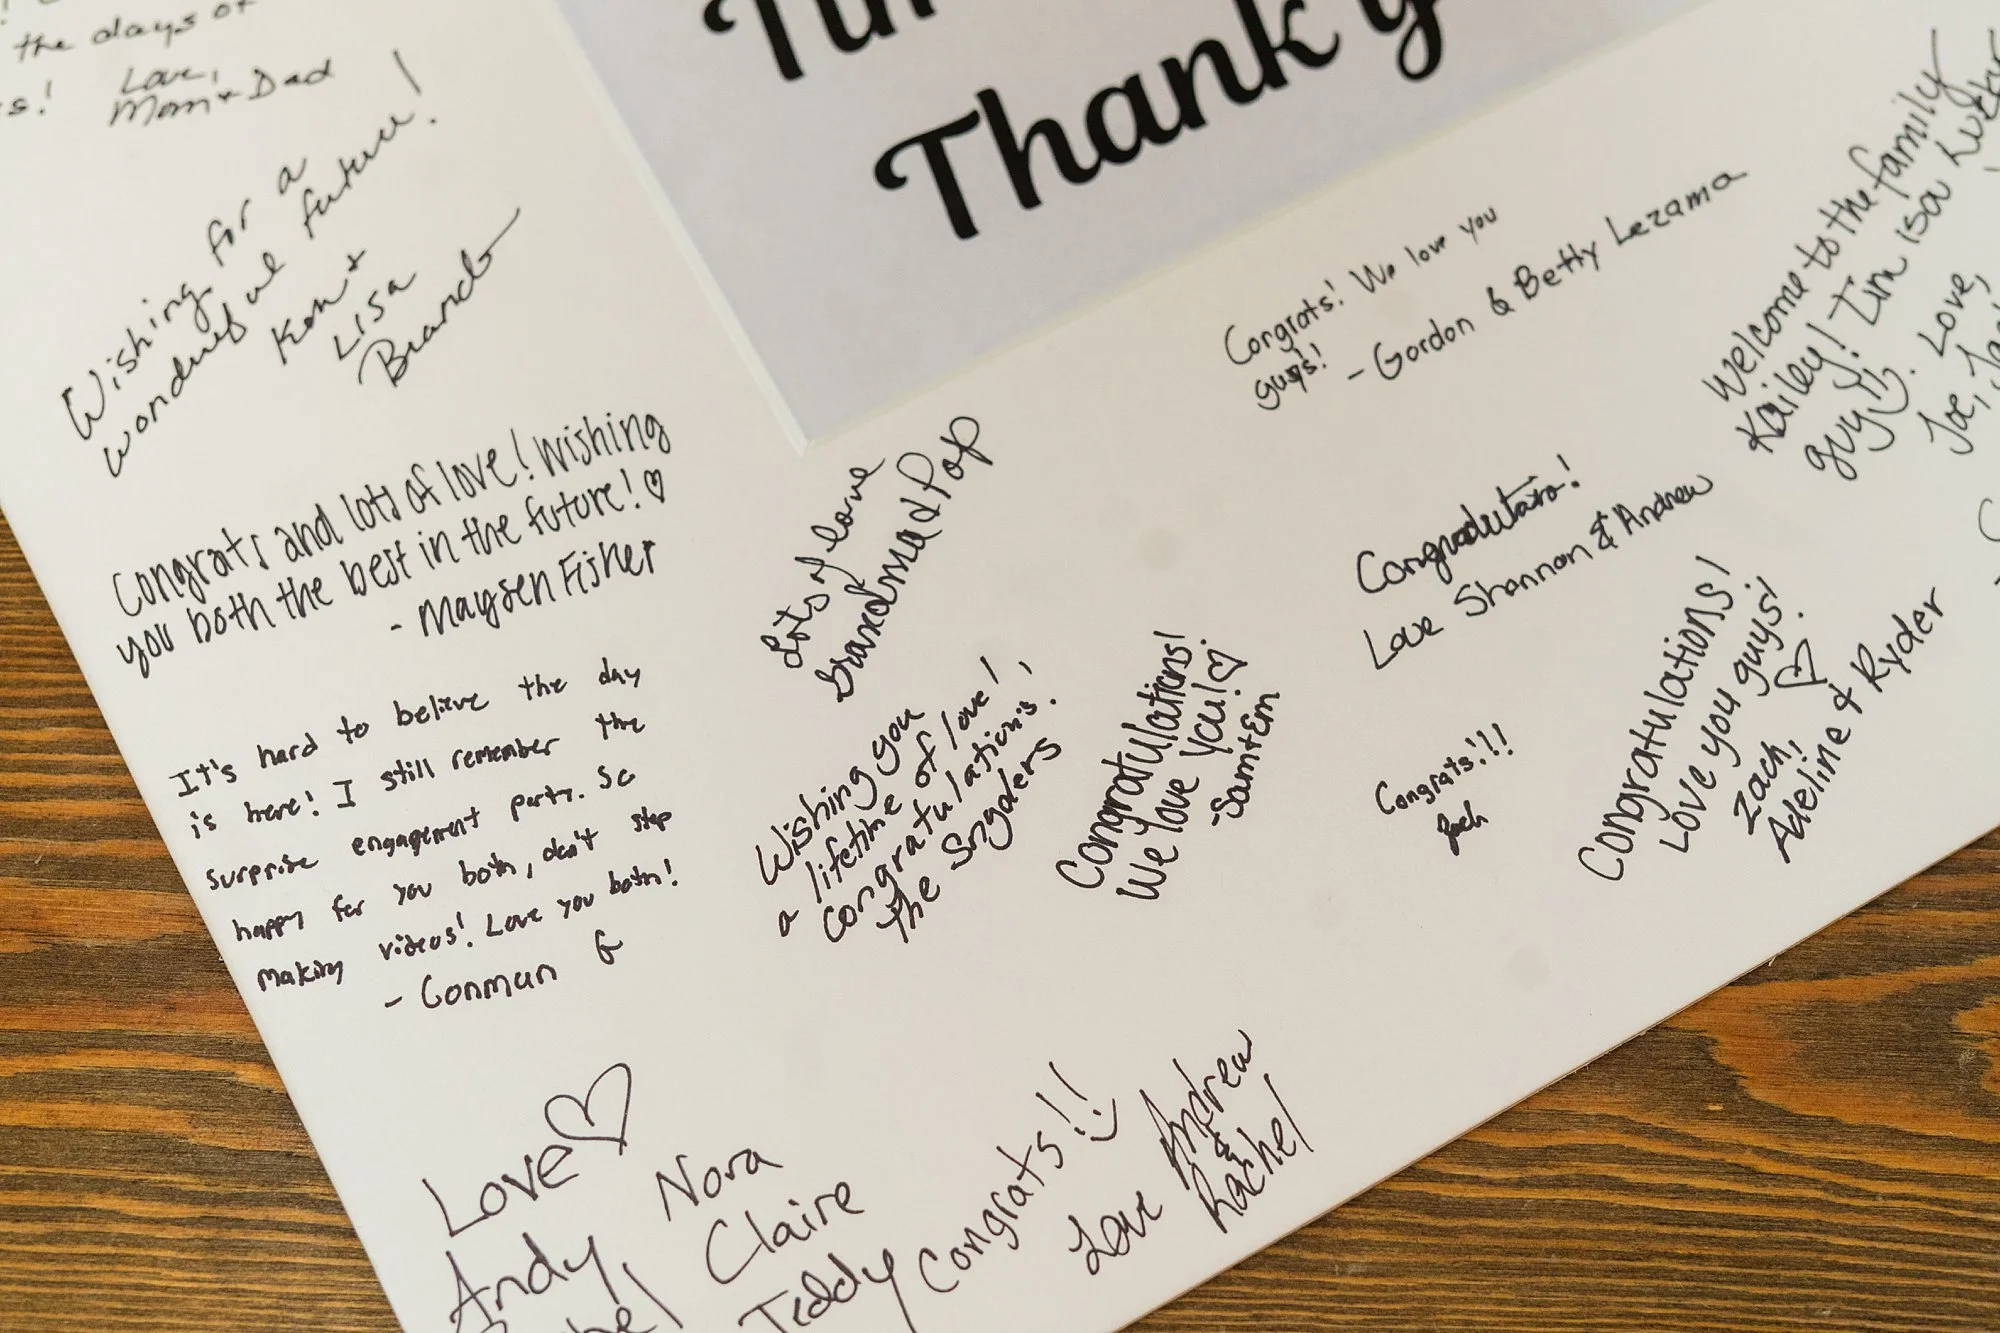 the days of
Love,
Mom & Dad
Wishing for a
wonderful future!
Ken &
Lisa
Brando
Congrats and lots of love! Wishing
you both the best in the future! ♡
- Maysen Fisher
It's hard to believe the day
is here! I still remember the
surprise engagement party. So
happy for you both, don't stop
making videos! Love you both!
- Conmun G
Love ♡
Andy,
Nora
Claire
Teddy
Thank y
Lots of love
Grandma & Pop
Wishing you
a lifetime of love!
Congratulations!
the Snyders
Congratulations!
We love you! ♡
- Sam + Em
Congrats!!
Love Andrew
&
Rachel
Congrats! We love you
guys!
- Gordon & Betty Lezama
Congratulations!
Love Shannon & Andrew
Congrats!!!
Congratulations!
Love you guys!
♡
Zach,
Adeline & Ryder
Welcome to the family
Kailey! Tim is a
guy!!
Love,
Joe,